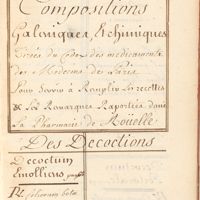 Compositions
Galeniques & chimiques
Tirées du Codex des medicaments
des Medecins de Paris
Pour Servir a Remplir les recettes
& les Remarques Raportées dans
la Pharmacie de Roüelle
Des Decoctions
Decoctum
Emolliens
R foliorum beta